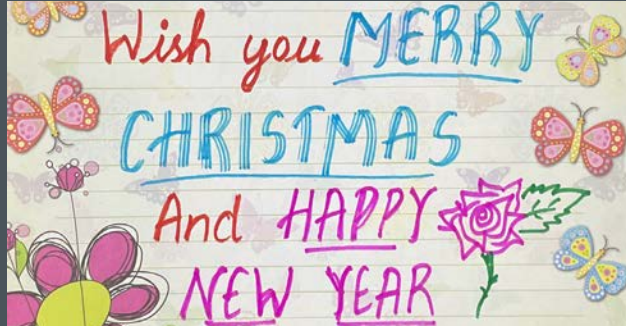 Wish you MERRY
CHRISTMAS
And HAPPY
NEW YEAR